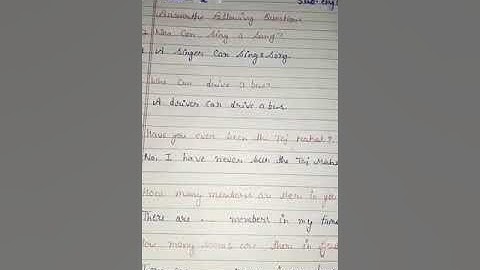 Sub:- Eng
Answer the following Question.
Who can sing a song?
A singer can sing a song.
Who can drive a bus?
A driver can drive a bus.
Have you ever been the Taj Mahal?
No, I have never been the Taj Maha
How many members are there in you
There are ... members in my fam
How many rooms are there in